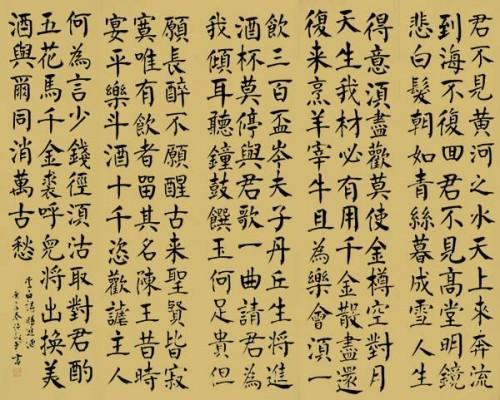 君不見黄河之水天上来奔流
到海不復回君不見高堂明鏡
悲白髮朝如青絲暮成雪人生
得意須盡歡莫使金樽空對月
天生我材必有用千金散盡還
復来烹羊宰牛且為樂會須一
飲三百盃岑夫子丹丘生將進
酒杯莫停與君歌一曲請君為
我傾耳聽鐘鼓饌玉何足貴但
願長醉不願醒古来聖賢皆寂
寞唯有飲者留其名陳王昔時
宴平樂斗酒十千恣歡謔主人
何為言少錢徑須沽取對君酌
五花馬千金裘呼兒將出換美
酒與爾同消萬古愁
李白詩將進酒